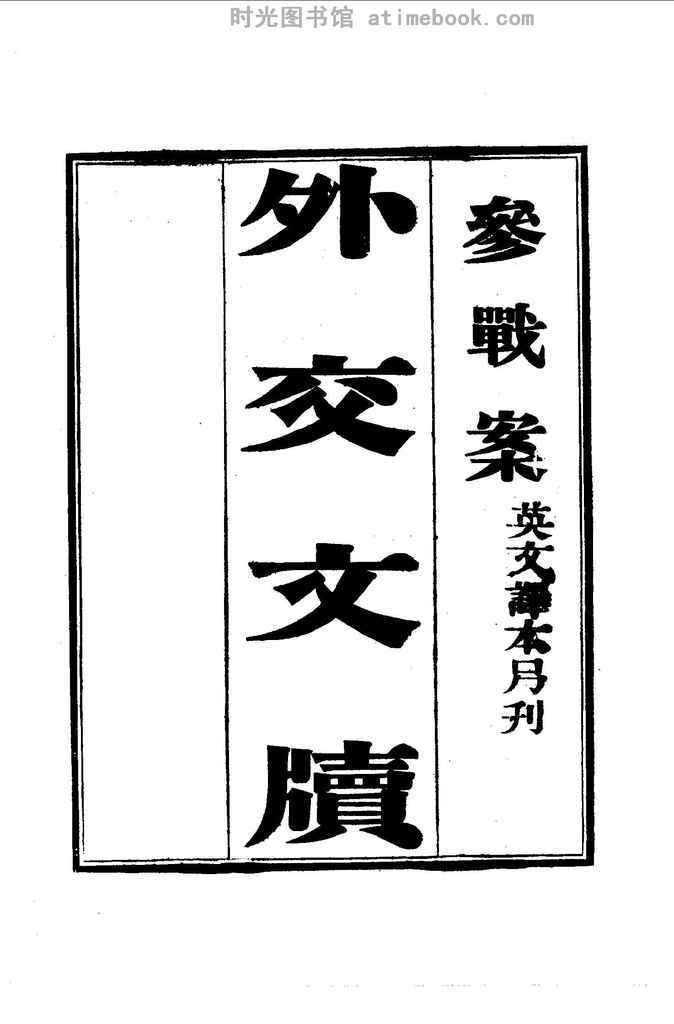 时光图书馆 atimebook.com
參戰案
英文譯本另刊
外交文牘